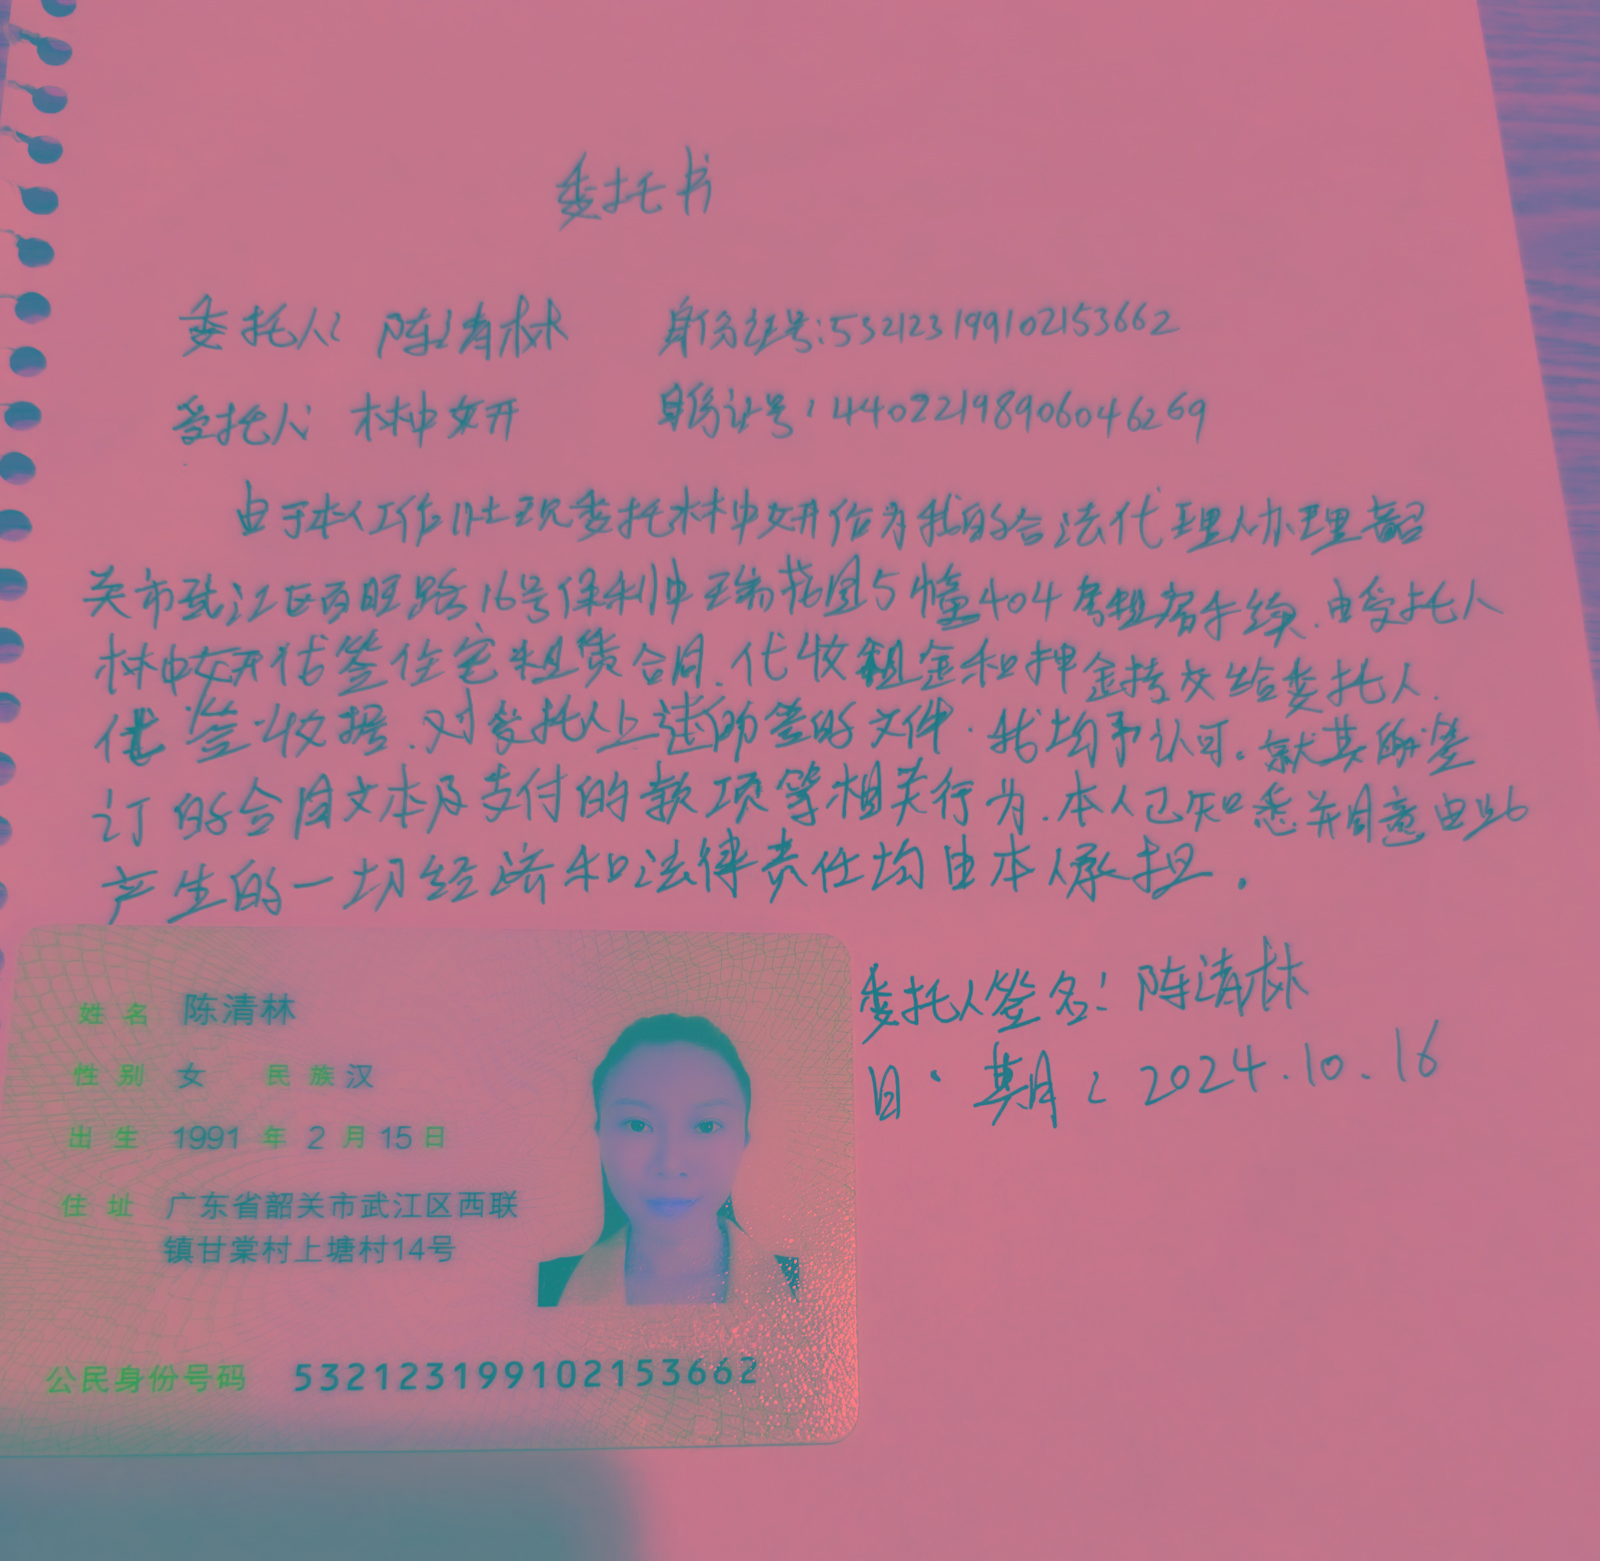 委托书
委托人: 陈清林 身份证号:532123199102153662
受托人: 林中妍 身份证号:440221198906046269
由于本人工作 现委托林中妍作为我的合法代理人办理韶
关市武江区西旺路16号保利中 花园5幢404房租房手续.由受托人
林中妍代签住宅租赁合同、代收租金和押金转交给委托人.
代签收据.对受托人上述所签的文件.我均予认可。就其所签
订的合同文本及支付的款项等相关行为.本人已知悉并同意由此
产生的一切经济和法律责任均由本人承担.
委托人签名: 陈清林
日期: 2024.10.16
姓名 陈清林
性别 女 民族 汉
出生 1991年2月15日
住址 广东省韶关市武江区西联
镇甘棠村上塘村14号
公民身份号码 532123199102153662